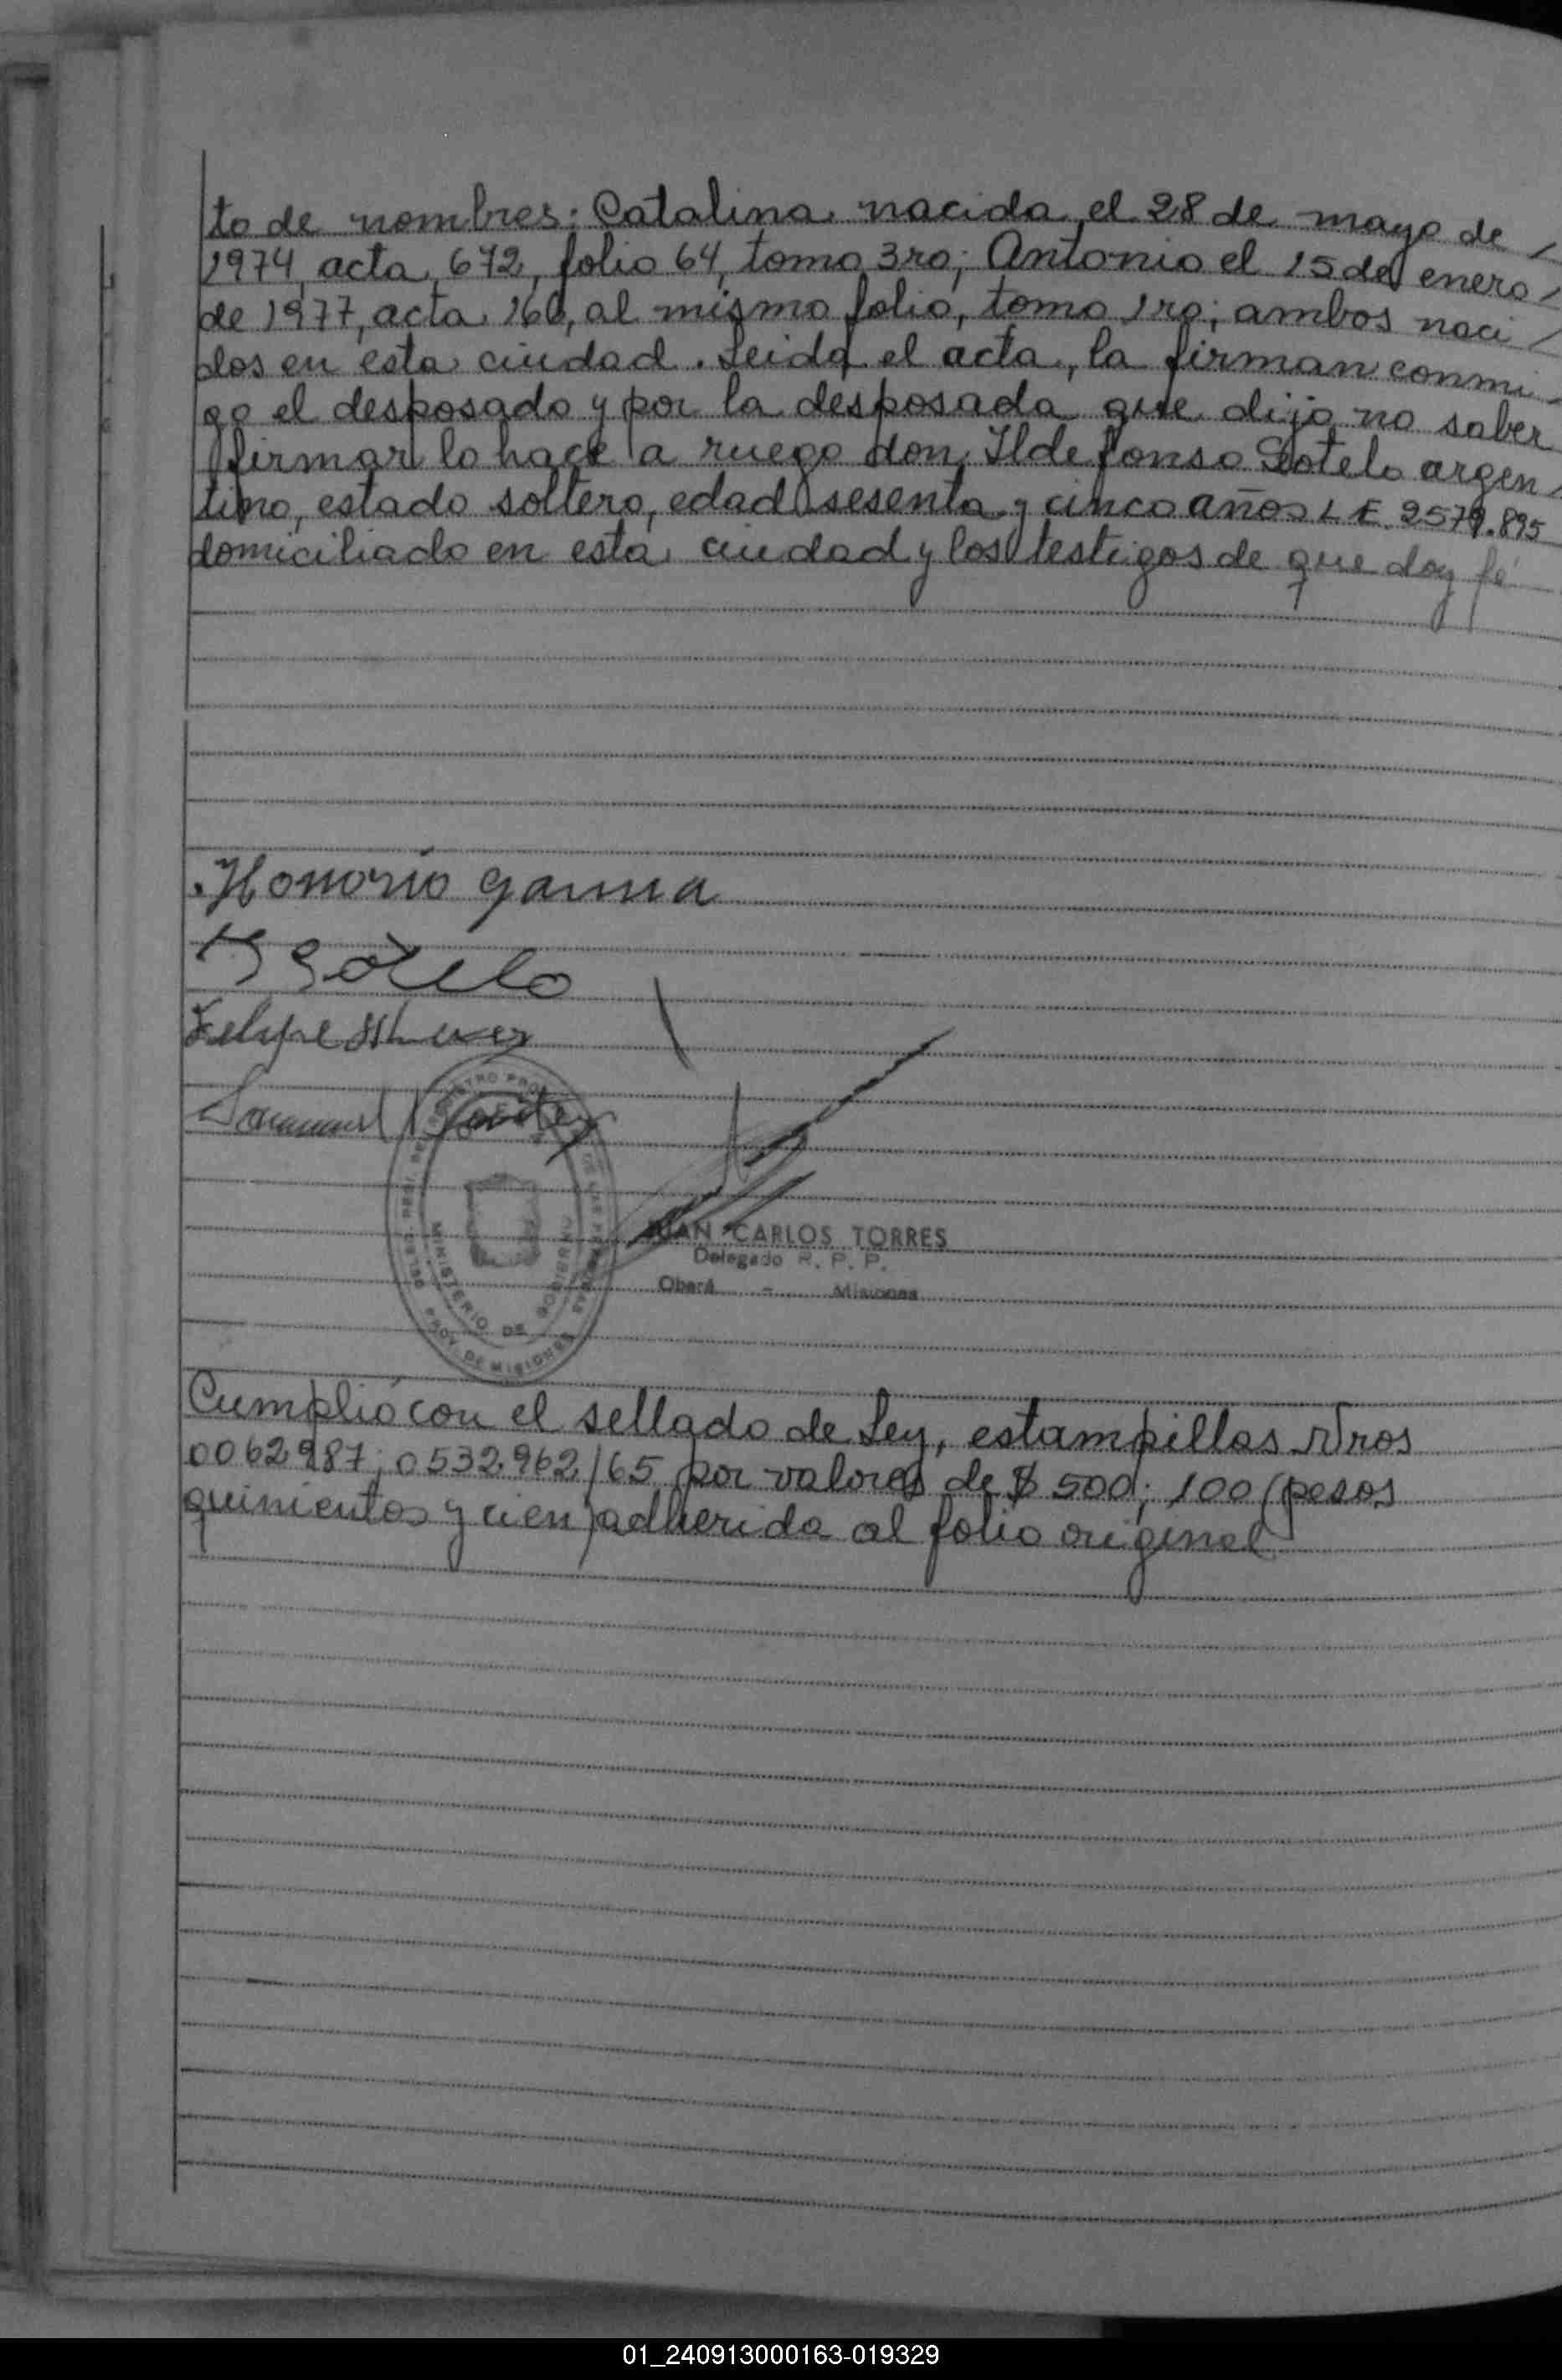 to de nombres: Catalina nacida el 28 de mayo de /
1974, acta 672, folio 64, tomo 3ro; Antonio el 15 de enero /
de 1977, acta 160, al mismo folio, tomo 1ro; ambos naci /
dos en esta ciudad. Leida el acta, la firman conmi-
go el desposado y por la desposada que dijo no saber
firmar lo hace a ruego don Ildefonso Sotelo argen /
tino, estado soltero, edad sesenta y cinco años L E 2579.895
domiciliado en esta ciudad y los testigos de que doy fé
Honorio
Sotelo
Felipe
JUAN CARLOS TORRES
Delegado R. P. P.
Oberá - Misiones
MINISTERIO DE
PROV. DE MISIONES
Cumplió con el sellado de Ley, estampillas Nros
0062987; 0532.962/65 por valores de $ 500; 100 (pesos
quinientos y cien) adherida al folio original
01_240913000163-019329